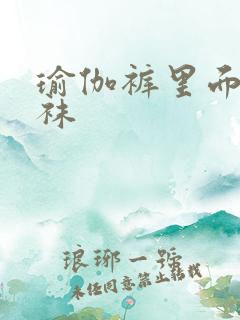 瑜伽裤里面
袜
琅琊一號
未经同意禁止转载